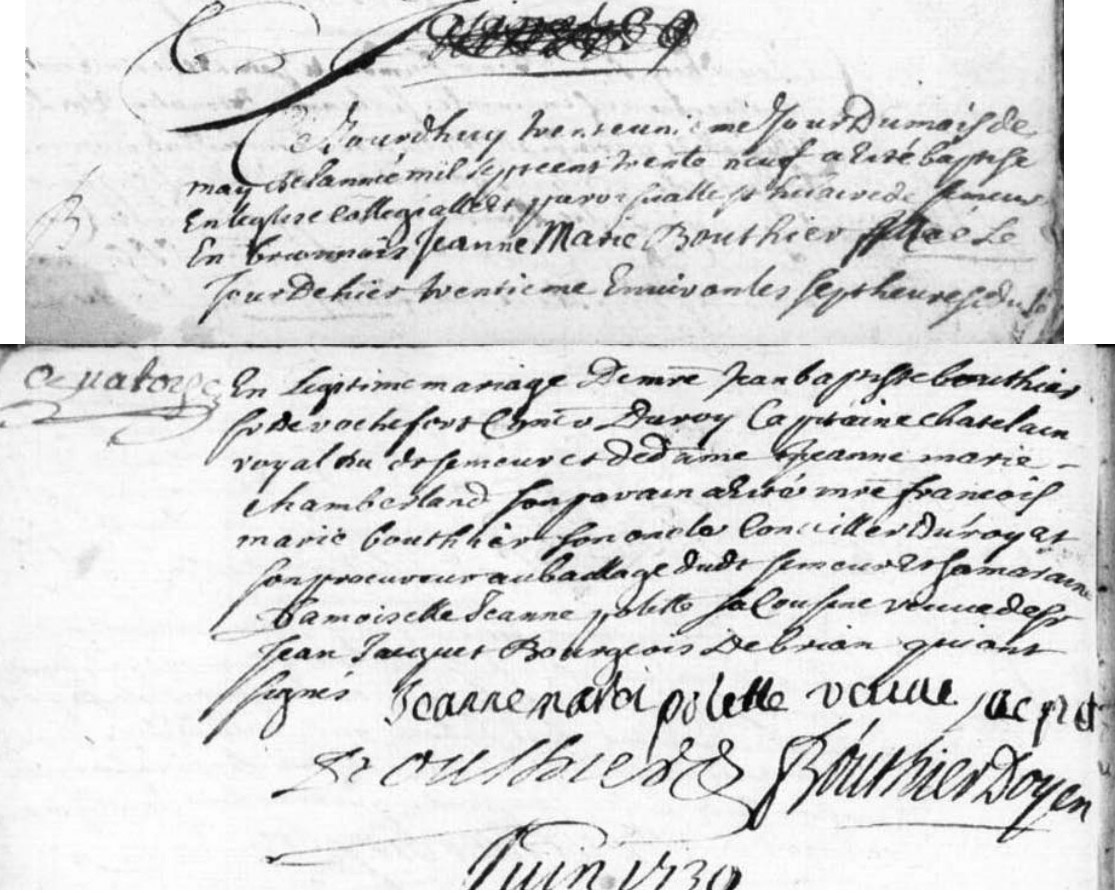 Ce Jourdhuy trente uniéme Jour Du mois de
may de lannee mil sept cent trente neuf a Eté baptisé
En leglise Collegialle et parroissialle st hilaire de semeur
En brionnois Jeanne Marie Bouthier née Le
Jour De hier trentieme Environ les sept heures du
quatorze
En Legitime mariage De mre Jean baptiste bouthier
sr De rochefort Duroy Capitaine Chatelain
royal du dt semeur et de dame Jeanne marie
Chamberland son parain a Eté mre francois
marie bouthier son oncle Conseiller Du roy et
son procureur au bailliage dudt semeur Et sa maraine
Damoiselle Jeanne polette sa Cousine veuve de sr
Jean Jacquet Bourgeois De brian qui ont
signés
Jeanne marie polette veuve jacquet
Bouthier Bouthier Doyen
Juin 1739